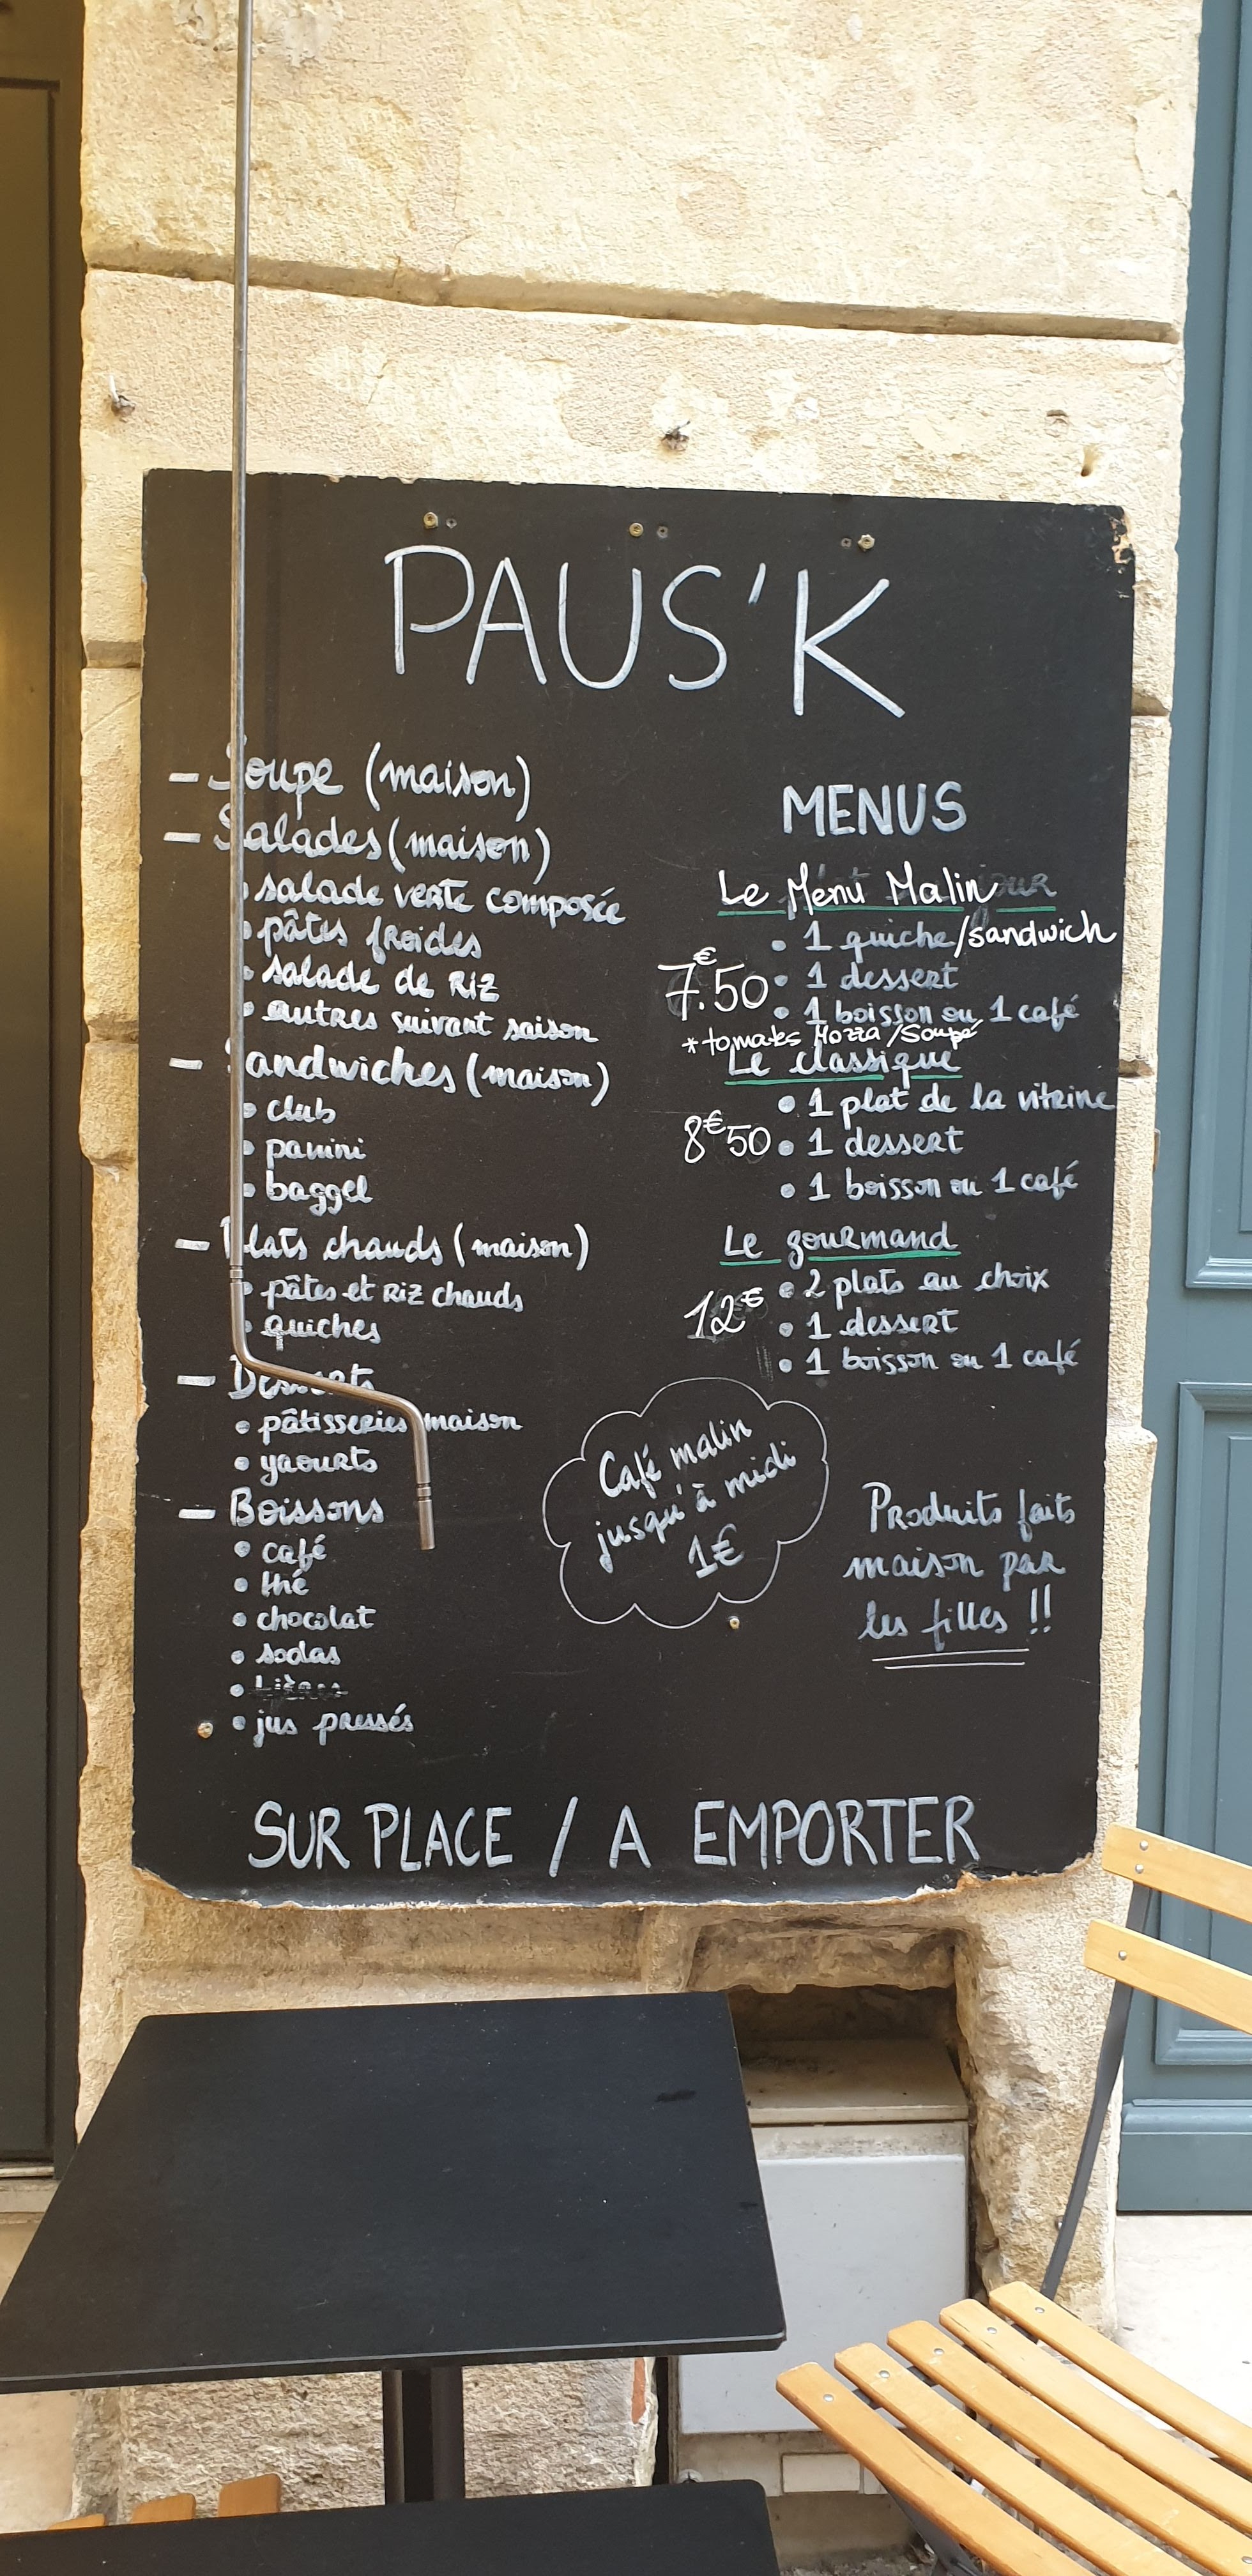 PAUS'K
— Soupe (maison)
— Salades (maison)
• salade verte composée
• pâtes froides
• salade de Riz
• autres suivant saison
— Sandwiches (maison)
• club
• panini
• baggel
— Plats chauds (maison)
• pâtes et Riz chauds
• quiches
— Desserts
• pâtisseries maison
• yaourts
— Boissons
• café
• thé
• chocolat
• sodas
• bières
• jus pressés
MENUS
Le Menu Malin
• 1 quiche/sandwich
7.50€ • 1 dessert
• 1 boisson ou 1 café
*tomates Mozza/Soupe
Le classique
• 1 plat de la vitrine
8€50 • 1 dessert
• 1 boisson ou 1 café
Le gourmand
• 2 plats au choix
12€ • 1 dessert
• 1 boisson ou 1 café
Café malin
jusqu'à midi
1€
Produits faits
maison par
les filles !!
SUR PLACE / A EMPORTER